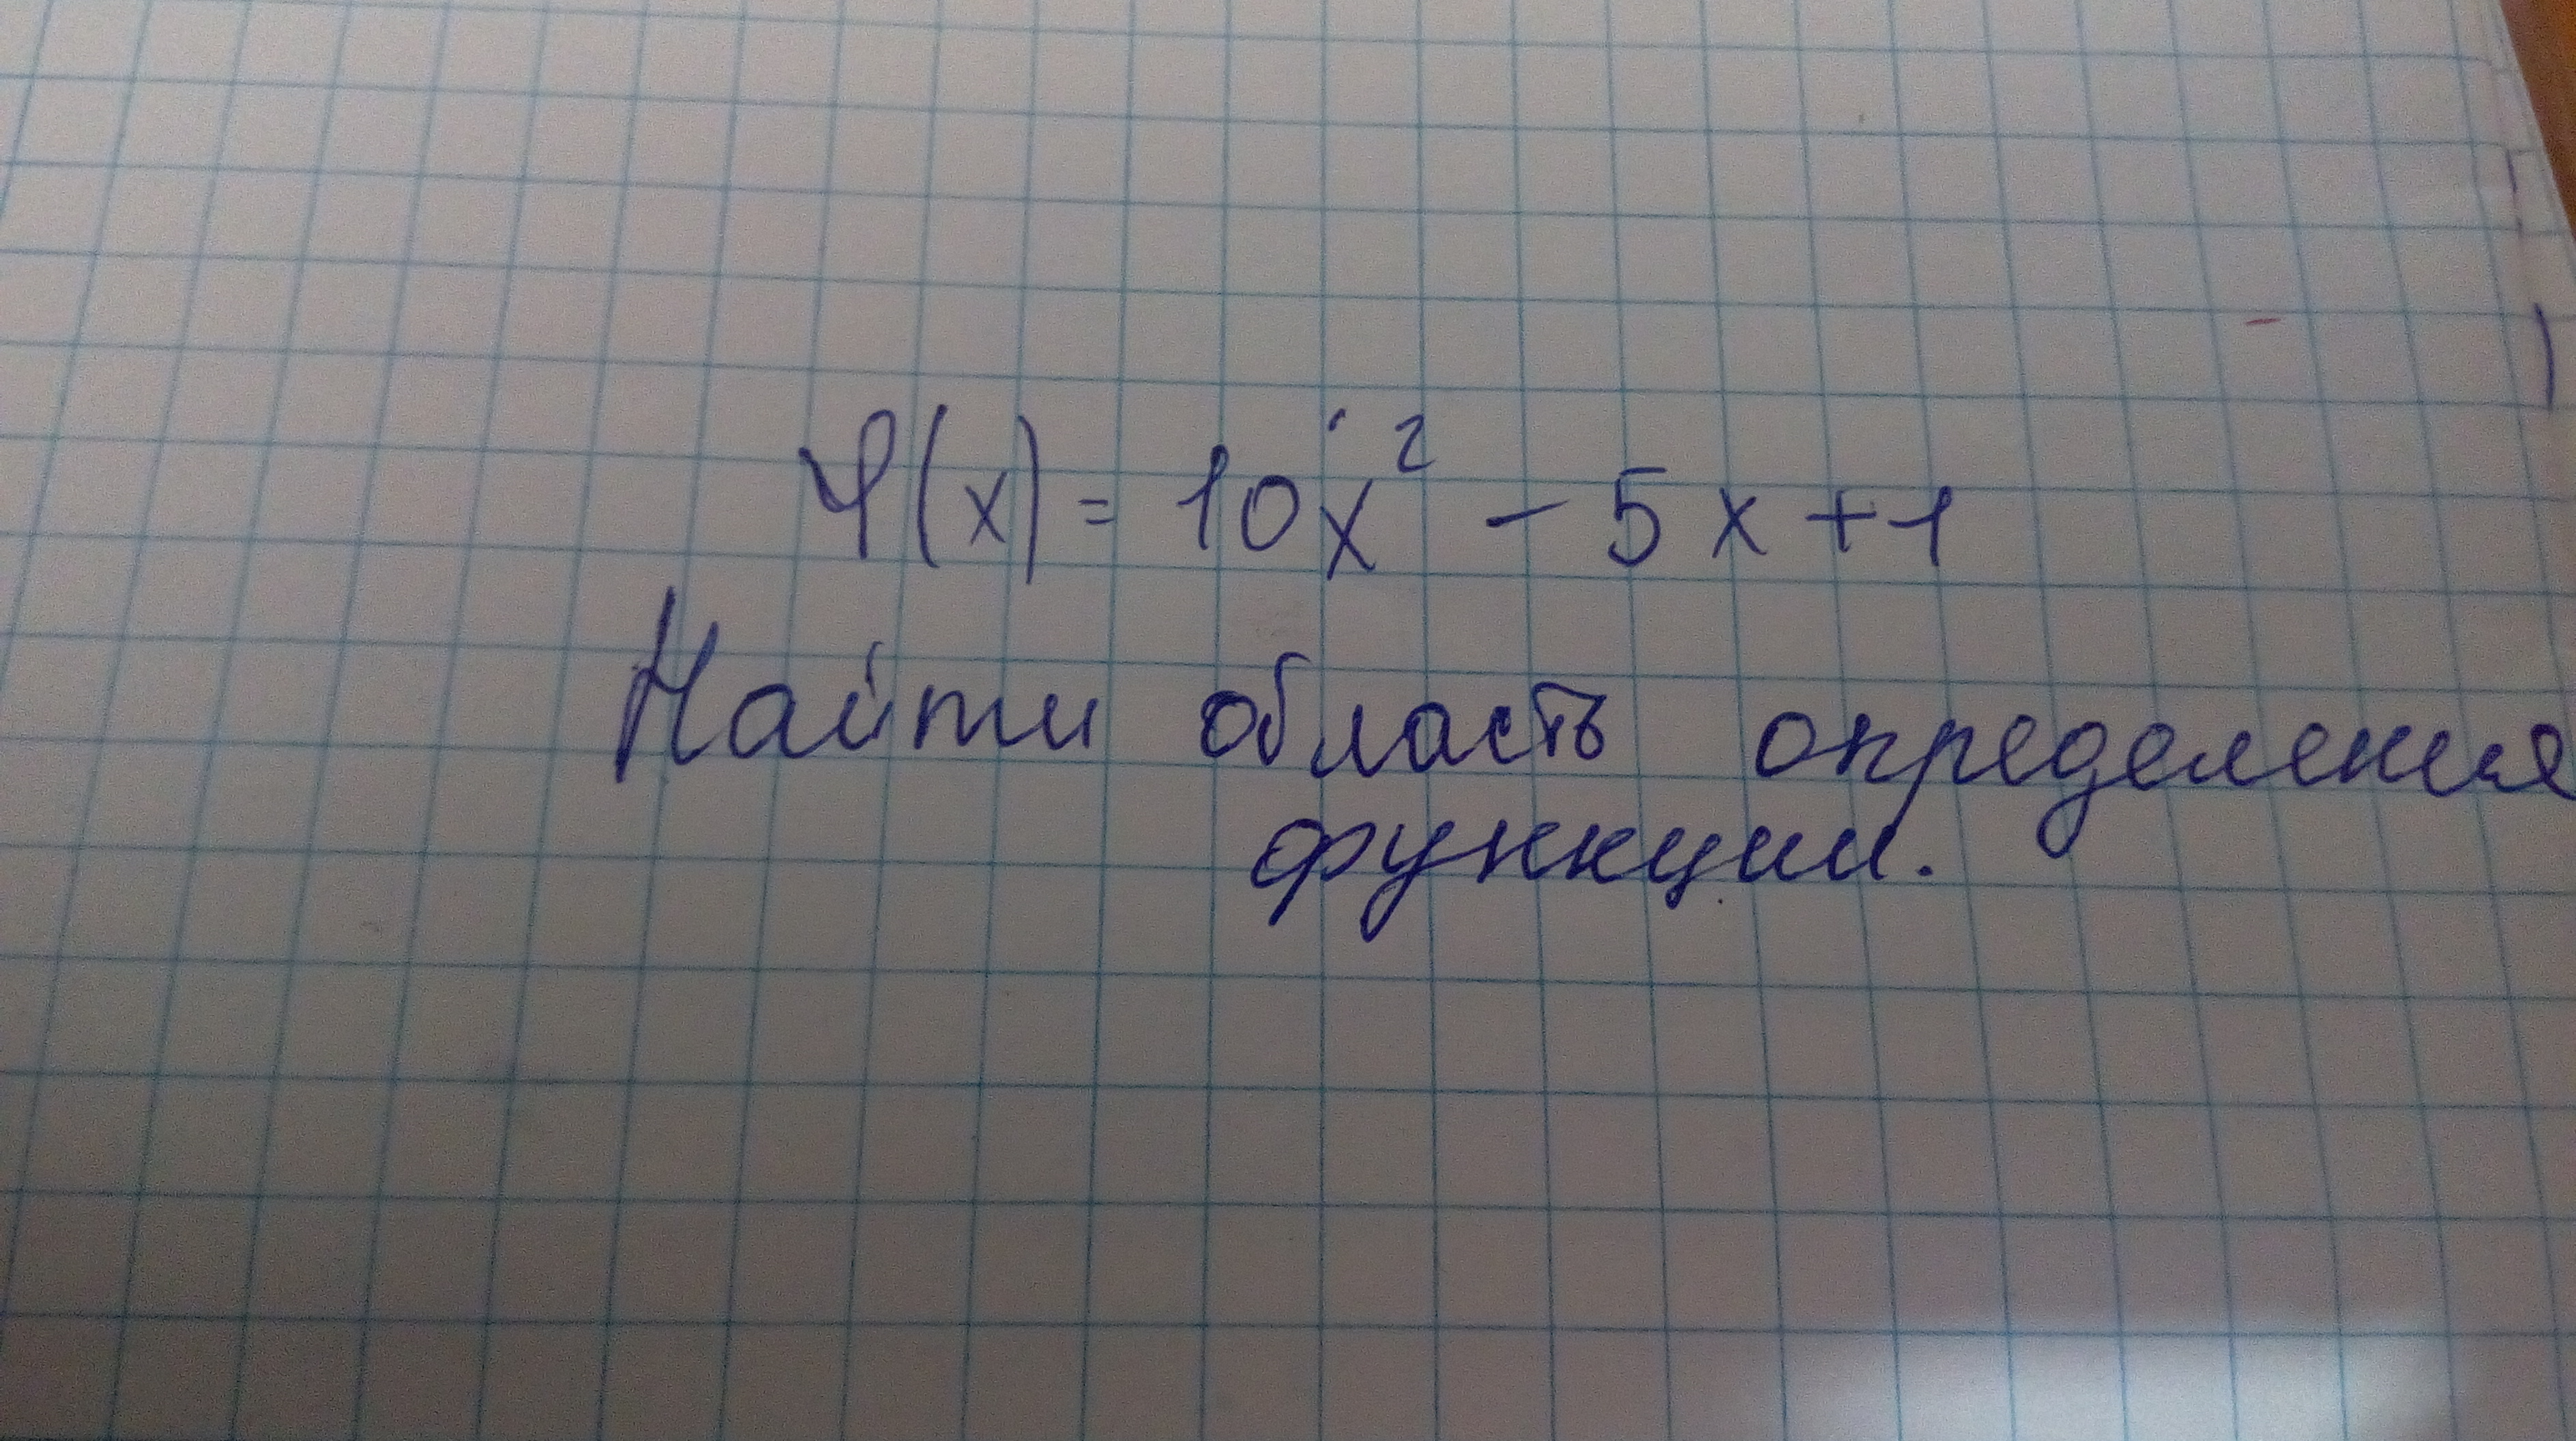 φ(x) = 10x² - 5x + 1
Найти область определения
функции.